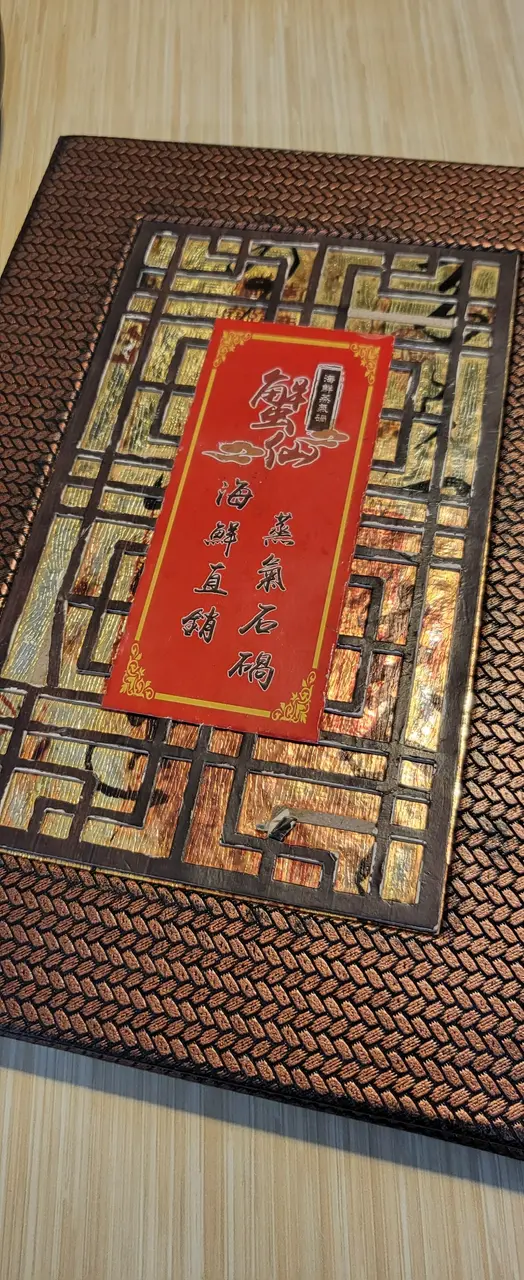 海鮮蒸氣鍋
蟹仙
蒸氣石鍋
海鮮直銷